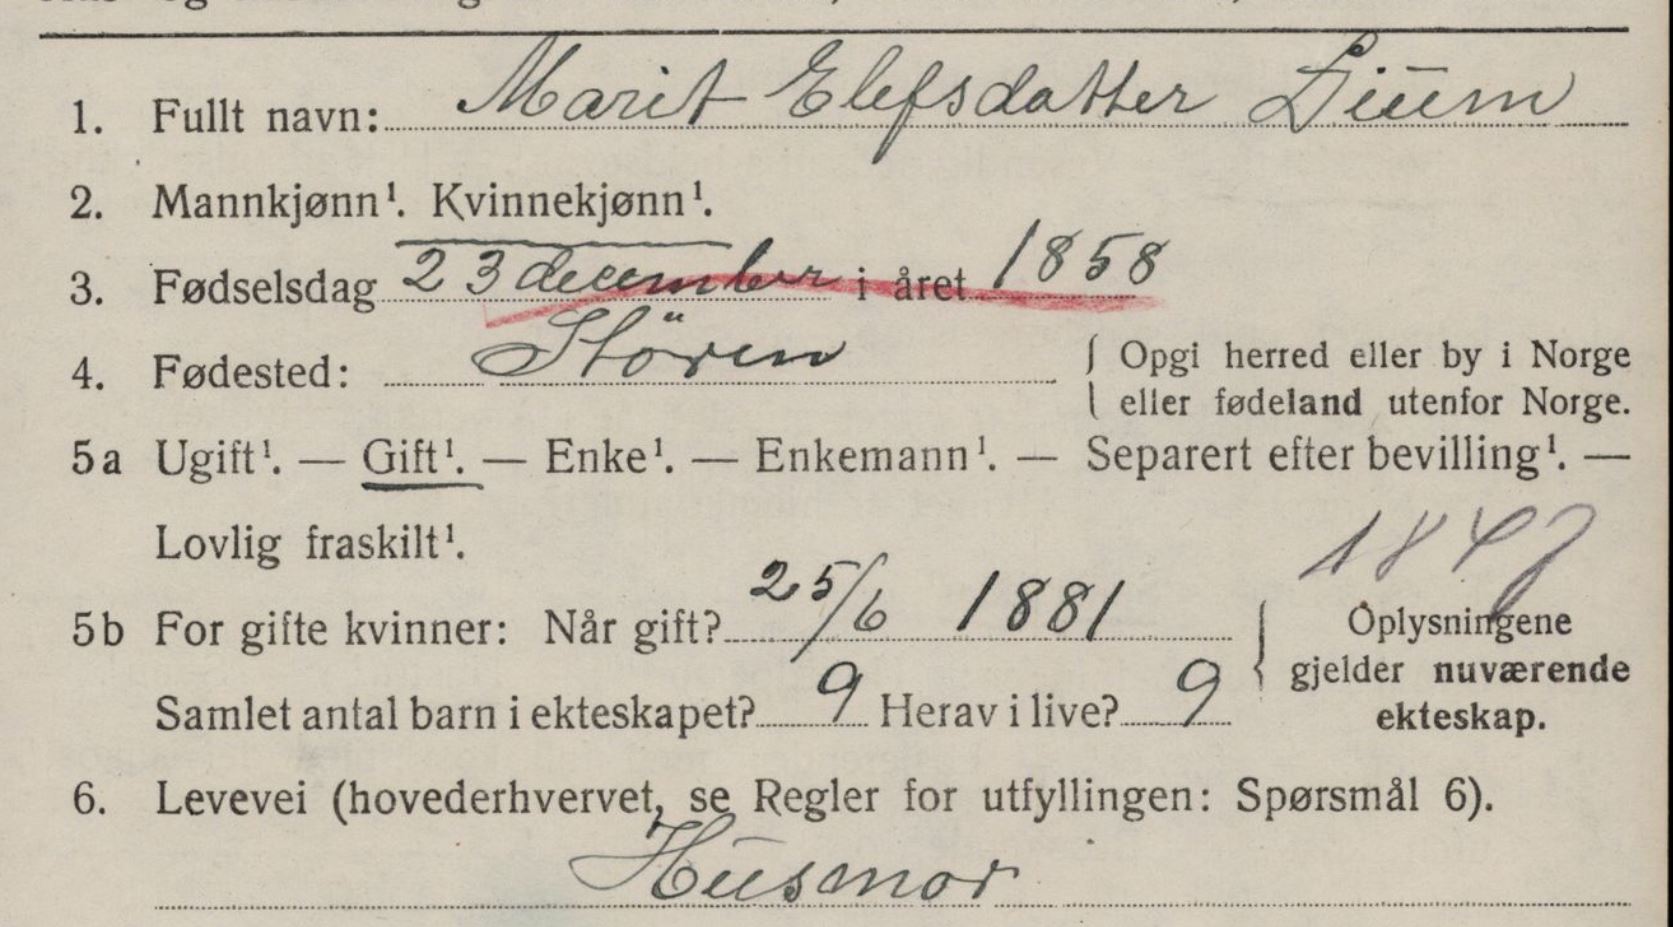 1. Fullt navn: Marit Elefsdatter Liüm
2. Mannkjønn¹. Kvinnekjønn¹.
3. Fødselsdag 23 december i året 1858
4. Fødested: Stören { Opgi herred eller by i Norge
eller fødeland utenfor Norge.
5a Ugift¹. — Gift¹. — Enke¹. — Enkemann¹. — Separert efter bevilling¹. —
Lovlig fraskilt¹.
1847
5b For gifte kvinner: Når gift? 25/6 1881 { Oplysningene
gjelder nuværende
Samlet antal barn i ekteskapet? 9 Herav i live? 9 ekteskap.
6. Levevei (hovederhvervet, se Regler for utfyllingen: Spørsmål 6).
Hüsmor